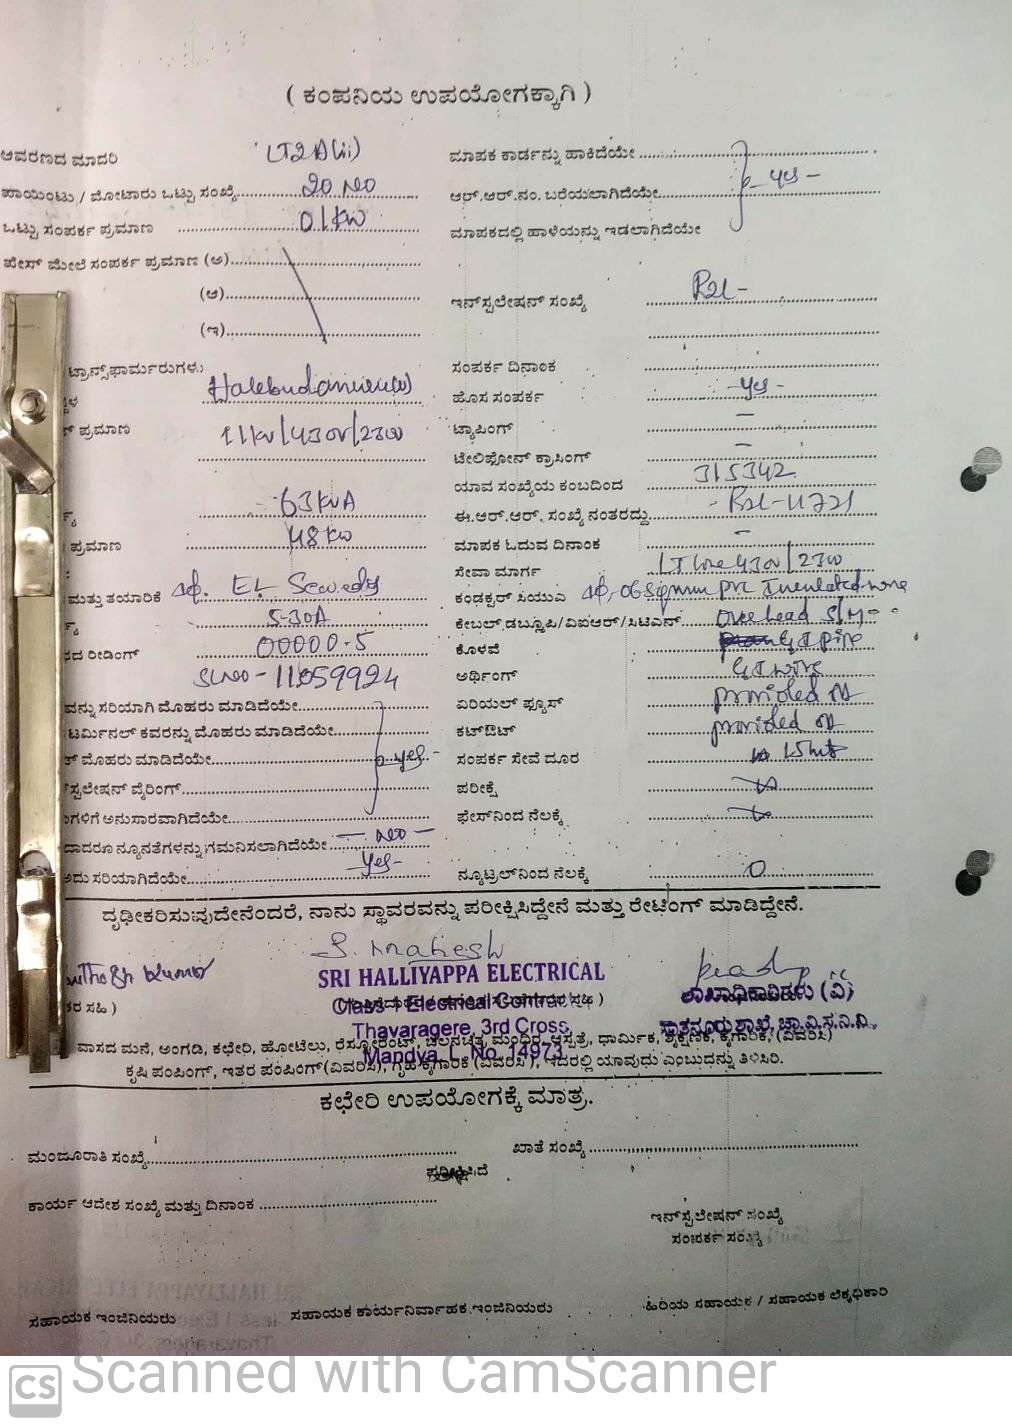 ( ಕಂಪನಿಯ ಉಪಯೋಗಕ್ಕಾಗಿ )
ಆವರಣದ ಮಾದರಿ LT2A(ii)
ಪಾಯಿಂಟು / ಮೋಟಾರು ಒಟ್ಟು ಸಂಖ್ಯೆ 20 NO
ಒಟ್ಟು ಸಂಪರ್ಕ ಪ್ರಮಾಣ 01KW
ಫೇಸ್ ಮೇಲೆ ಸಂಪರ್ಕ ಪ್ರಮಾಣ (ಅ)
(ಆ)
(ಇ)
ಟ್ರಾನ್ಸ್‌ಫಾರ್ಮರುಗಳು
ಪ್ರಮಾಣ 11KV/430V/230V
63KVA
ಪ್ರಮಾಣ 48KW
ಮತ್ತು ತಯಾರಿಕೆ
5-30A
ರೀಡಿಂಗ್ 00000-5
SLNO-11059924
ವನ್ನು ಸರಿಯಾಗಿ ಮೊಹರು ಮಾಡಿದೆಯೇ
ಟರ್ಮಿನಲ್ ಕವರನ್ನು ಮೊಹರು ಮಾಡಿದೆಯೇ
ಮೊಹರು ಮಾಡಿದೆಯೇ yes-
ಸ್ಟಲೇಷನ್ ವೈರಿಂಗ್
ಗಳಿಗೆ ಅನುಸಾರವಾಗಿದೆಯೇ
ದಾದರೂ ನ್ಯೂನತೆಗಳನ್ನು ಗಮನಿಸಲಾಗಿದೆಯೇ - NO -
ಅದು ಸರಿಯಾಗಿದೆಯೇ yes-
ಮಾಪಕ ಕಾರ್ಡನ್ನು ಹಾಕಿದೆಯೇ
ಆರ್.ಆರ್.ನಂ. ಬರೆಯಲಾಗಿದೆಯೇ - yes -
ಮಾಪಕದಲ್ಲಿ ಹಾಳೆಯನ್ನು ಇಡಲಾಗಿದೆಯೇ
ಇನ್‌ಸ್ಟಲೇಷನ್ ಸಂಖ್ಯೆ
ಸಂಪರ್ಕ ದಿನಾಂಕ
ಹೊಸ ಸಂಪರ್ಕ - yes -
ಟ್ಯಾಪಿಂಗ್ -
ಟೇಲಿಫೋನ್ ಕ್ರಾಸಿಂಗ್ -
ಯಾವ ಸಂಖ್ಯೆಯ ಕಂಬದಿಂದ 315342
ಈ.ಆರ್.ಆರ್. ಸಂಖ್ಯೆ ನಂತರದ್ದು
ಮಾಪಕ ಓದುವ ದಿನಾಂಕ -
ಸೇವಾ ಮಾರ್ಗ LT line 430V/230V
ಕಂಡಕ್ಟರ್ ಸಿಯುಎ 06 sqmm PVC Insulated wire
ಕೇಬಲ್ ಡಬ್ಲೂಪಿ/ವಿಐಆರ್/ಸಿಟಿಎಸ್ Over head S/M-
ಕೊಳವೆ G I pipe
ಅರ್ಥಿಂಗ್ G I wire
ಏರಿಯಲ್ ಫ್ಯೂಸ್ provided
ಕಟ್‌ಔಟ್ provided
ಸಂಪರ್ಕ ಸೇವೆ ದೂರ 15 mts
ಪರೀಕ್ಷೆ
ಫೇಸ್‌ನಿಂದ ನೆಲಕ್ಕೆ
ನ್ಯೂಟ್ರಲ್‌ನಿಂದ ನೆಲಕ್ಕೆ 0
ದೃಢೀಕರಿಸುವುದೇನೆಂದರೆ, ನಾನು ಸ್ಥಾವರವನ್ನು ಪರೀಕ್ಷಿಸಿದ್ದೇನೆ ಮತ್ತು ರೇಟಿಂಗ್ ಮಾಡಿದ್ದೇನೆ.
S. Mahesh
SRI HALLIYAPPA ELECTRICAL
Class-1 Electrical Contractor
Thavaragere, 3rd Cross,
Mandya. L. No. 14973
ಶಾಖಾಧಿಕಾರಿಗಳು (ವಿ)
ವಾಸದ ಮನೆ, ಅಂಗಡಿ, ಕಛೇರಿ, ಹೋಟೆಲು, ರೆಸ್ಟೋರೆಂಟ್, ಚಲನಚಿತ್ರ, ಮಂದಿರ, ಆಸ್ಪತ್ರೆ, ಧಾರ್ಮಿಕ, ಶೈಕ್ಷಣಿಕ, ಕೈಗಾರಿಕೆ, (ವಿವರಿಸಿ)
ಕೃಷಿ ಪಂಪಿಂಗ್, ಇತರ ಪಂಪಿಂಗ್ (ವಿವರಿಸಿ), ಗೃಹ ಕೈಗಾರಿಕೆ (ವಿವರಿಸಿ), ಇದರಲ್ಲಿ ಯಾವುದು ಎಂಬುದನ್ನು ತಿಳಿಸಿರಿ.
ಕಛೇರಿ ಉಪಯೋಗಕ್ಕೆ ಮಾತ್ರ.
ಮಂಜೂರಾತಿ ಸಂಖ್ಯೆ ಖಾತೆ ಸಂಖ್ಯೆ
ಪರೀಕ್ಷಿಸಿದೆ
ಕಾರ್ಯ ಆದೇಶ ಸಂಖ್ಯೆ ಮತ್ತು ದಿನಾಂಕ
ಇನ್‌ಸ್ಟಲೇಷನ್ ಸಂಖ್ಯೆ
ಸಂಪರ್ಕ ಸಂಖ್ಯೆ
ಸಹಾಯಕ ಇಂಜಿನಿಯರು ಸಹಾಯಕ ಕಾರ್ಯನಿರ್ವಾಹಕ ಇಂಜಿನಿಯರು ಹಿರಿಯ ಸಹಾಯಕ / ಸಹಾಯಕ ಲೆಕ್ಕಾಧಿಕಾರಿ
CS Scanned with CamScanner